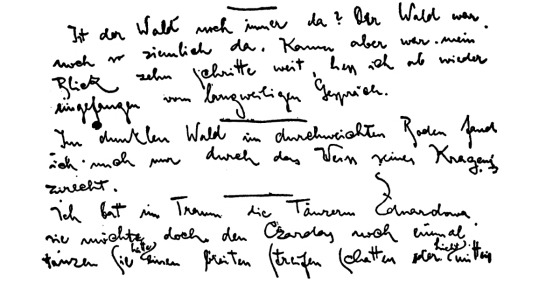 Ist der Wald noch immer da? Der Wald war
noch so ziemlich da. Kaum aber war mein
Blick zehn Schritte weit, liess ich ab wieder
eingefangen vom langweiligen Gespräch.
Im dunklen Wald im durchweichten Boden fand
ich mich nur durch das Weiss seines Kragens
zurecht.
Ich bat im Traum die Tänzerin Eduardowa
sie möchte doch den Czardas noch einmal
tanzen Sie hatte einen breiten Streifen Schatten oder Licht mitten